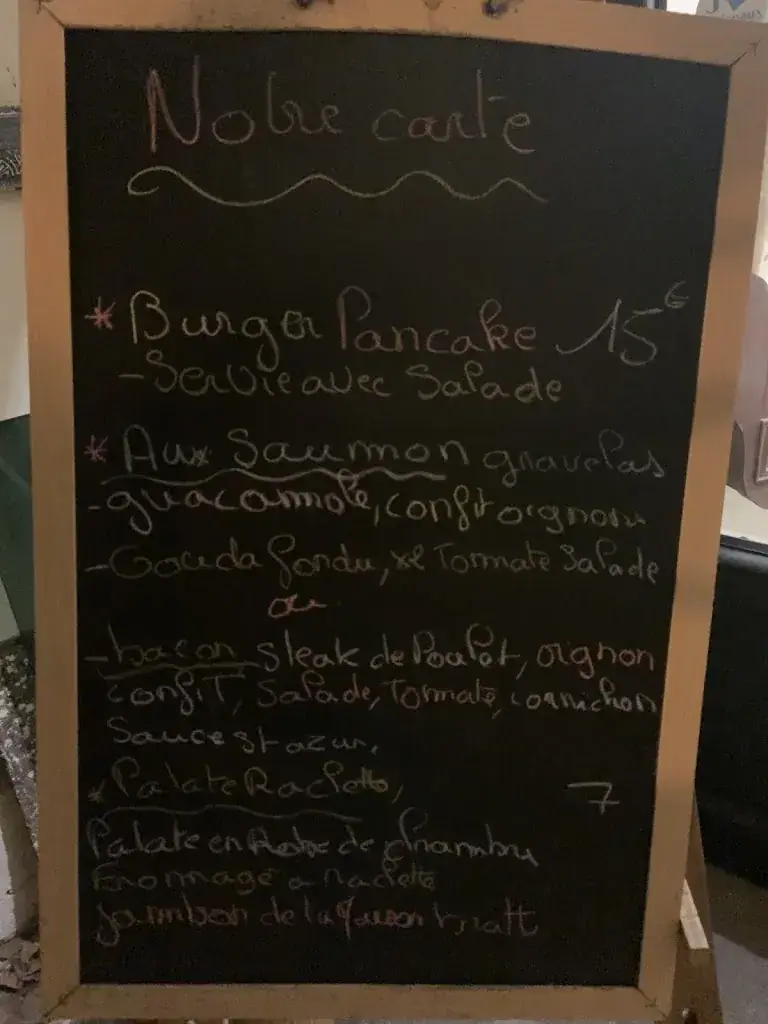 Notre carte
* Burger Pancake 15€
- Servie avec Salade
* Aux Saumon gravelas
- guacamole, confit oignons
- Gouda fondu, Tomate Salade
ou
- bacon steak de Poulet, oignon
confiT, Salade, Tomate, cornichon
Sauce st azur,
* Patate Raclette, 7
Patate en Robe de chambre
Frommage a raclette
Jambon de la